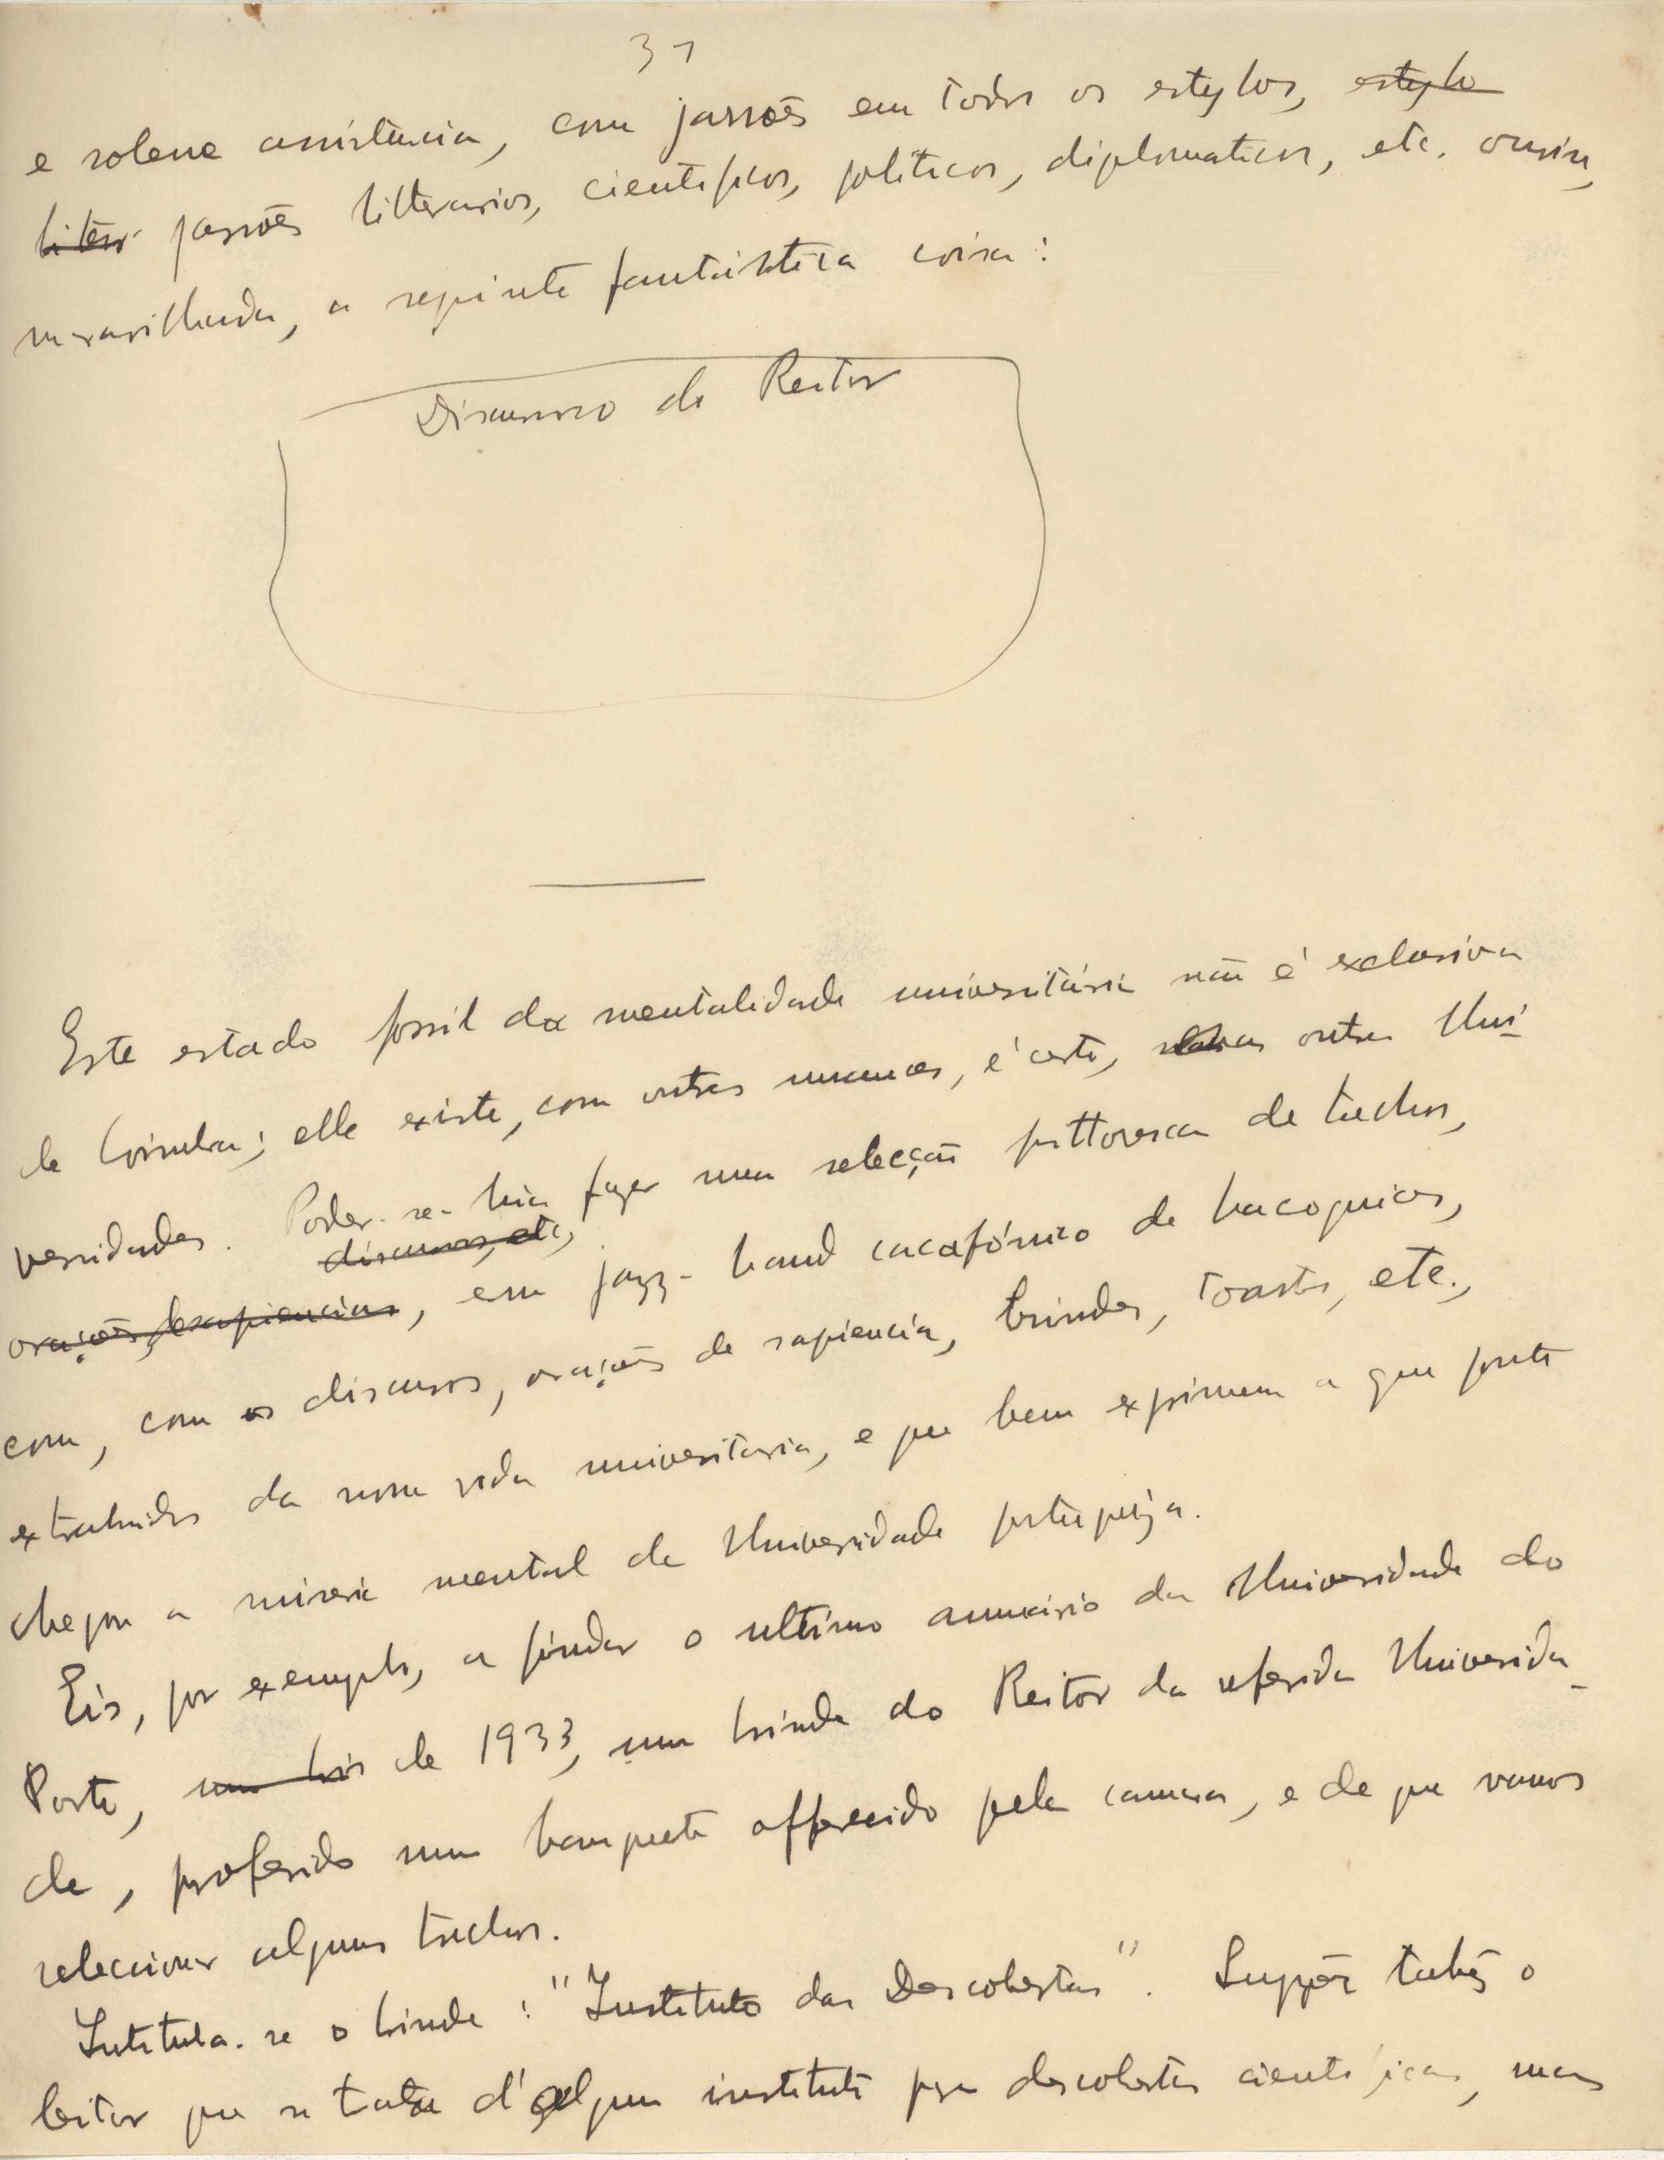 37
e solene assistencia, com jarrões em todos os estylos, estylo
liter jarrões litterarios, cientificos, politicos, diplomaticos, etc. ouviu,
maravilhada, a seguinte fantastica coisa:
Discurso do Reitor
Este estado fossil da mentalidade universitária não é exclusivo
de Coimbra; elle existe, com outras nuances, é certo, outras Uni-
versidades. Poder-se-hia fazer uma selecção pittoresca de trechos,
discursos, etc,
orações, de sapiencias, em jazz-band cacafónico de bacoquices,
com, com os discursos, orações de sapiencia, brindes, toasts, etc.,
extrahidos da nossa vida universitaria, e que bem exprimem a que ponto
chegou a miseria mental da Universidade portugueza.
Eis, por exemplo, a findar o ultimo anuário da Universidade do
Porto, um bri de 1933, um brinde do Reitor da referida Universida-
de, proferido num banquete offerecido pela camara, e de que vamos
seleccionar alguns trechos.
Intitula-se o brinde: "Instituto das Descobertas". Suppôr o
leitor que se trata d'algum instituto para descobertas cientificas, mas